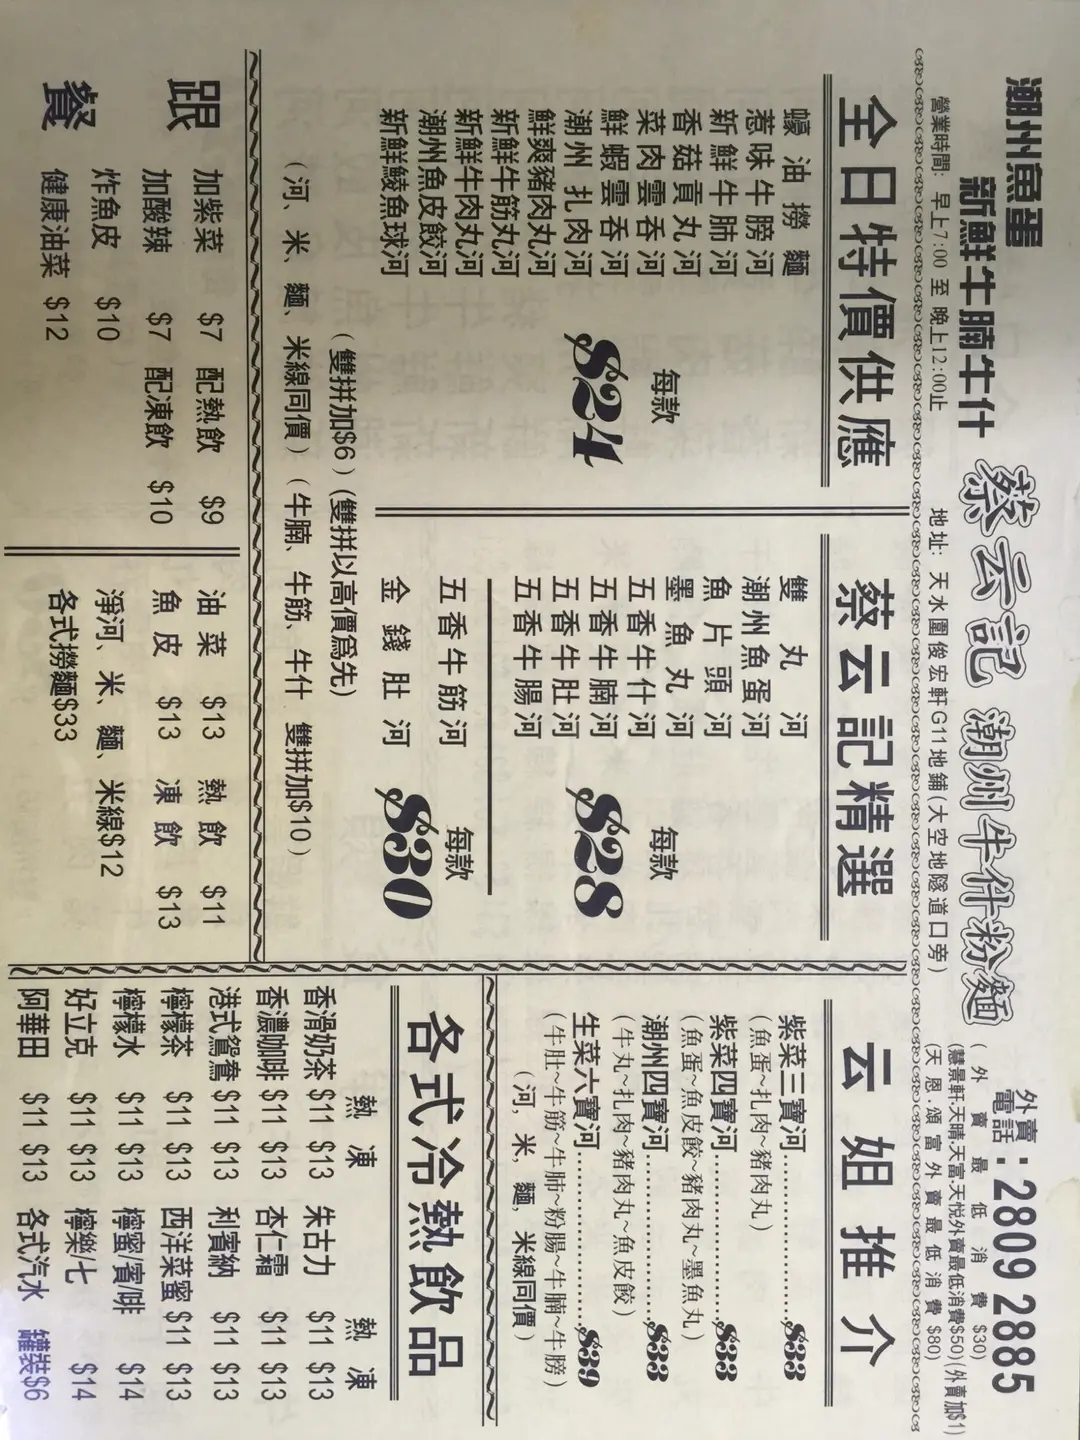 潮州魚蛋
新鮮牛腩牛什
蔡云記
潮州牛什粉麵
外賣電話:2809 2885
(外賣最低消費$30)
(慧景軒.天晴.天富.天悅外賣最低消費$50)(外賣加$1)
(天恩.頌富外賣最低消費$80)
營業時間: 早上7:00 至 晚上12:00止
地址: 天水圍俊宏軒G11地鋪(大空地隧道口旁)
全日特價供應
蠔油撈麵
惹味牛膀河
新鮮牛肺河
香菇貢丸河
菜肉雲吞河
鮮蝦雲吞河
潮州扎肉河
鮮爽豬肉丸河
新鮮牛筋丸河
新鮮牛肉丸河
潮州魚皮餃河
新鮮鯪魚球河
每款
$24
蔡云記精選
雙丸河
潮州魚蛋河
魚片頭河
墨魚丸河
五香牛什河
五香牛腩河
五香牛肚河
五香牛腸河
每款
$28
五香牛筋河
金錢肚河
每款
$30
(雙拼加$6) (雙拼以高價為先)
(河、米、麵、米線同價) (牛腩、牛筋、牛什 雙拼加$10)
云姐推介
紫菜三寶河..........$33
(魚蛋~扎肉~豬肉丸)
紫菜四寶河..........$33
(魚蛋~魚皮餃~豬肉丸~墨魚丸)
潮州四寶河..........$33
(牛丸~扎肉~豬肉丸~魚皮餃)
生菜六寶河..........$39
(牛肚~牛筋~牛肺~粉腸~牛腩~牛膀)
(河, 米, 麵, 米線同價)
跟餐
加紫菜 $7 配熱飲 $9
加酸辣 $7 配凍飲 $10
炸魚皮 $10
健康油菜 $12
油菜 $13 熱飲 $11
魚皮 $13 凍飲 $13
淨河、米、麵、米線$12
各式撈麵$33
各式冷熱飲品
熱 凍 熱 凍
香滑奶茶 $11 $13 朱古力 $11 $13
香濃咖啡 $11 $13 杏仁霜 $11 $13
港式鴛鴦 $11 $13 利賓納 $11 $13
檸檬茶 $11 $13 西洋菜蜜 $11 $13
檸檬水 $11 $13 檸蜜/賓/啡 $14
好立克 $11 $13 檸樂/七 $14
阿華田 $11 $13 各式汽水 罐裝$6